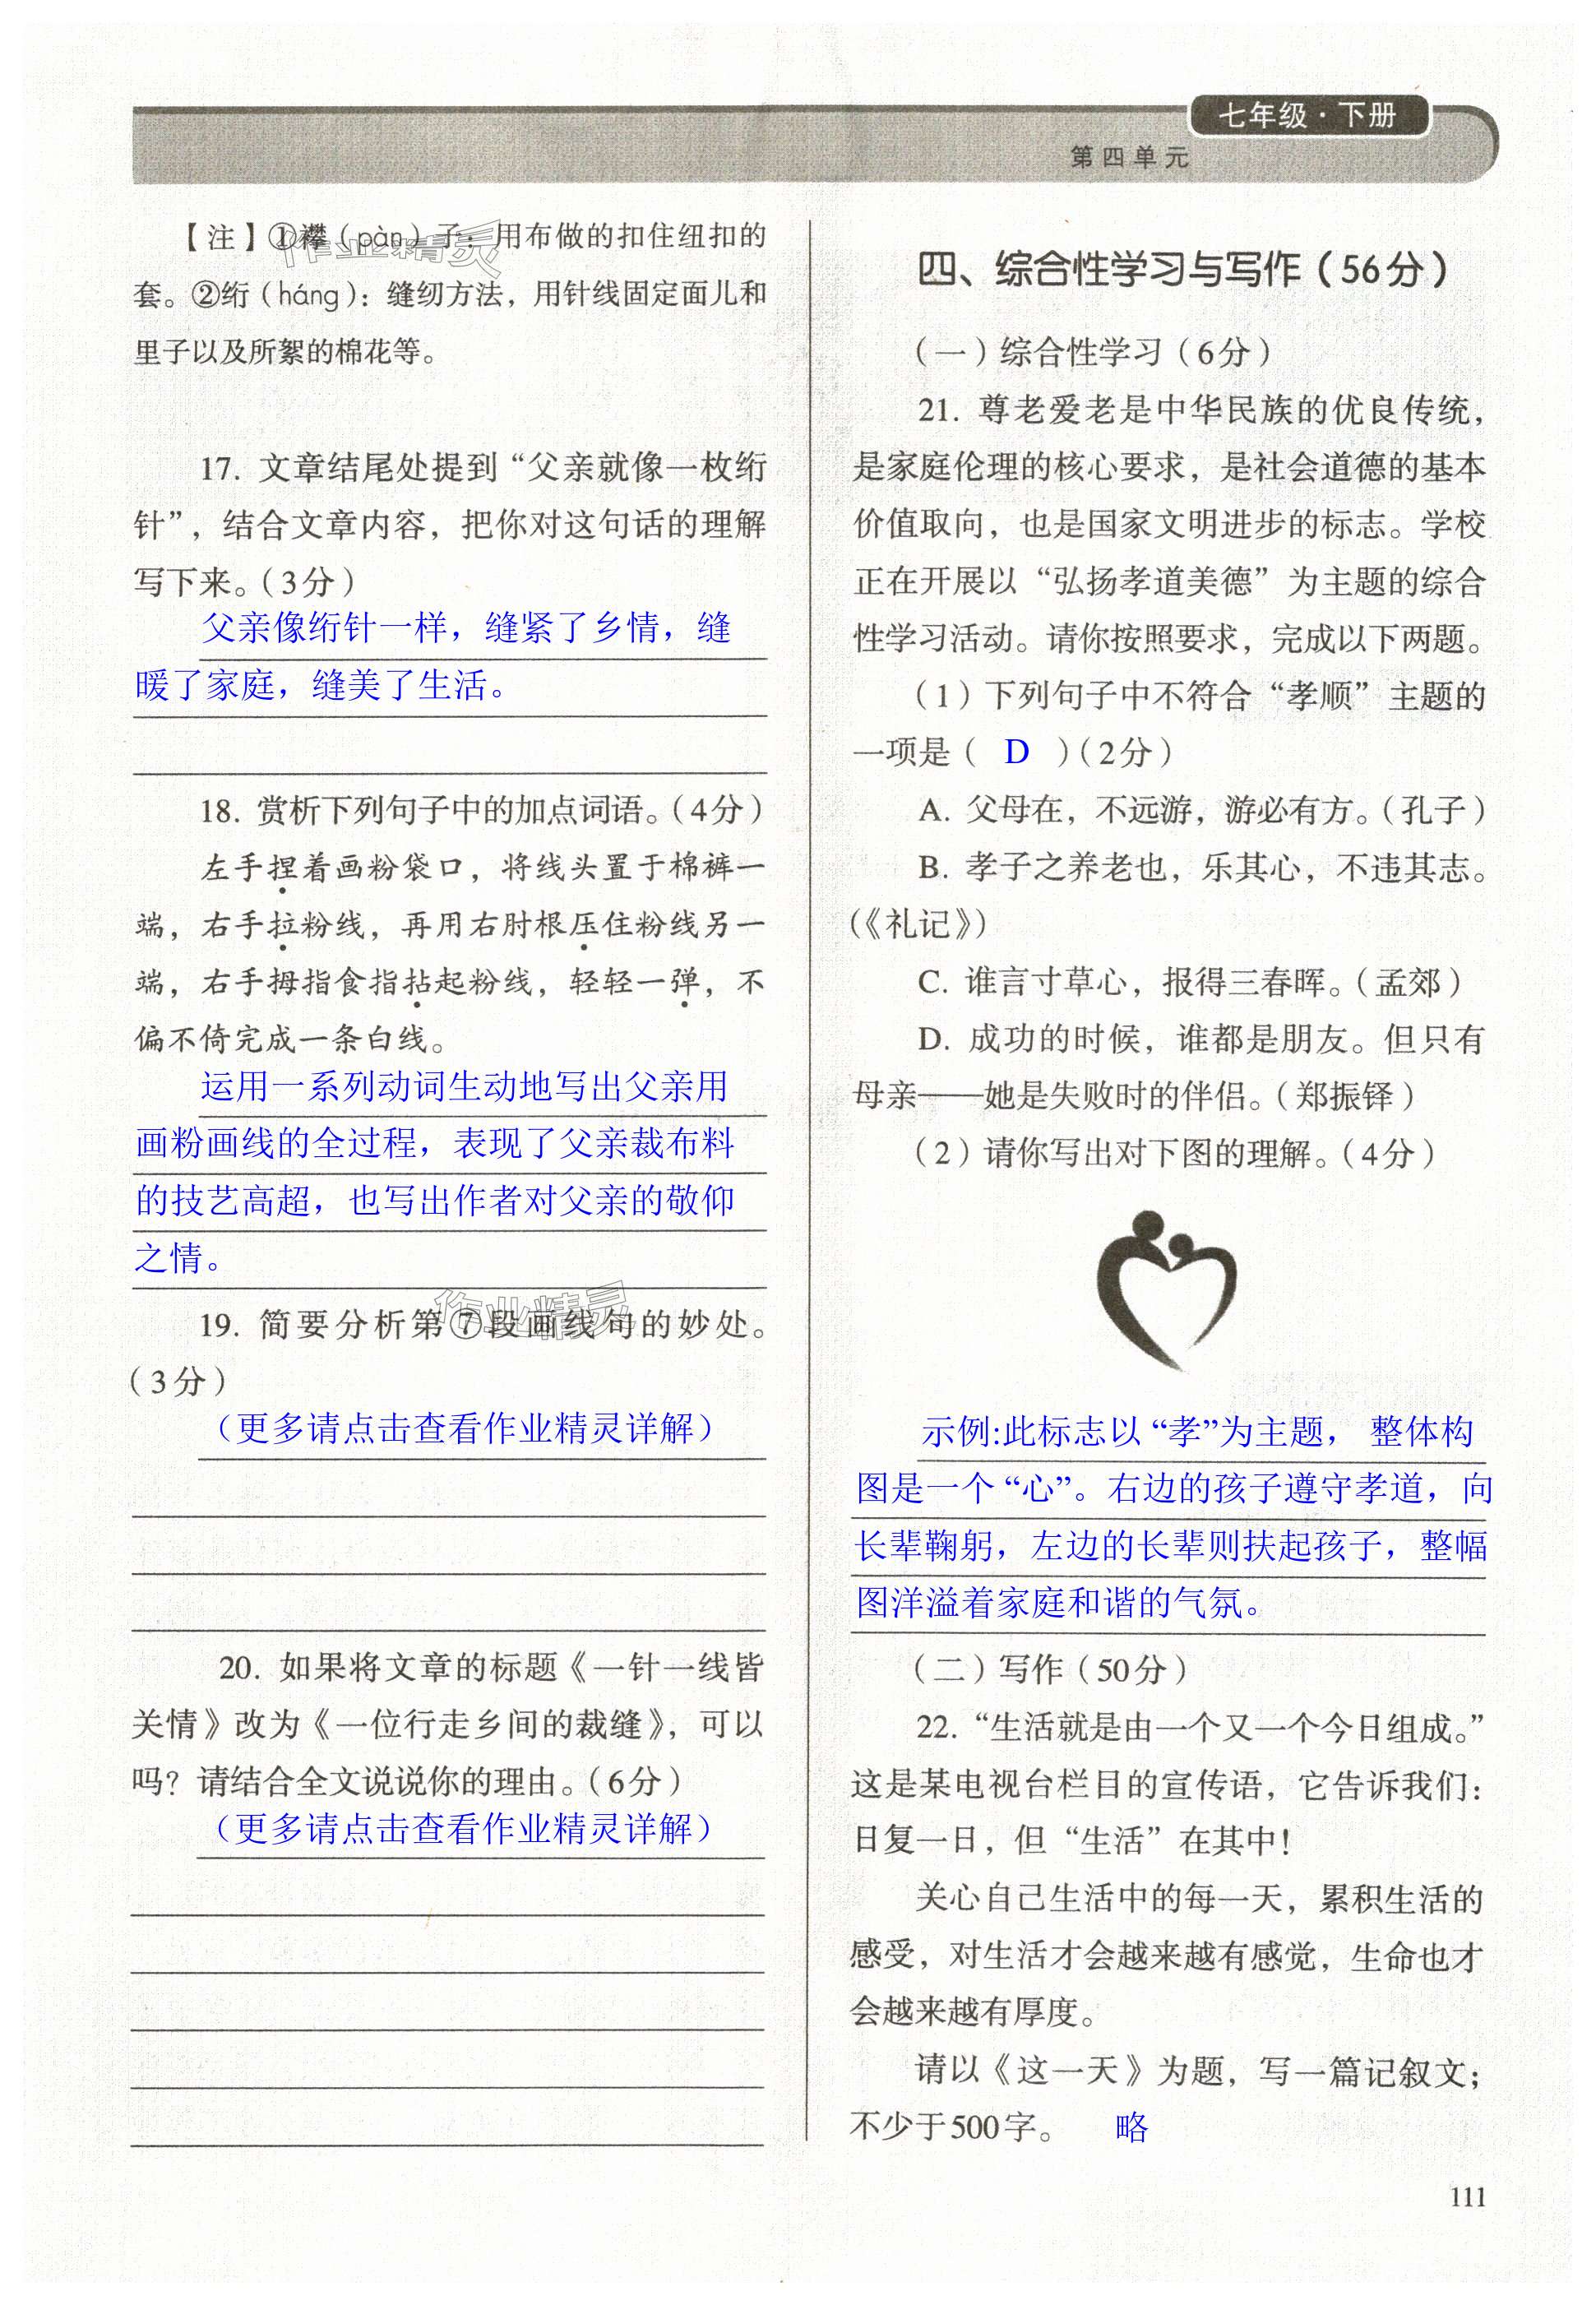 七年级·下册
第四单元
【注】①襻（pàn）子：用布做的扣住纽扣的
套。②绗（háng）：缝纫方法，用针线固定面儿和
里子以及所絮的棉花等。
17. 文章结尾处提到“父亲就像一枚绗
针”，结合文章内容，把你对这句话的理解
写下来。（3分）
父亲像绗针一样，缝紧了乡情，缝
暖了家庭，缝美了生活。
18. 赏析下列句子中的加点词语。（4分）
左手捏着画粉袋口，将线头置于棉裤一
端，右手拉粉线，再用右肘根压住粉线另一
端，右手拇指食指拈起粉线，轻轻一弹，不
偏不倚完成一条白线。
运用一系列动词生动地写出父亲用
画粉画线的全过程，表现了父亲裁布料
的技艺高超，也写出作者对父亲的敬仰
之情。
19. 简要分析第⑦段画线句的妙处。
（3分）
（更多请点击查看作业精灵详解）
20. 如果将文章的标题《一针一线皆
关情》改为《一位行走乡间的裁缝》，可以
吗？请结合全文说说你的理由。（6分）
（更多请点击查看作业精灵详解）
四、综合性学习与写作（56分）
（一）综合性学习（6分）
21. 尊老爱老是中华民族的优良传统，
是家庭伦理的核心要求，是社会道德的基本
价值取向，也是国家文明进步的标志。学校
正在开展以“弘扬孝道美德”为主题的综合
性学习活动。请你按照要求，完成以下两题。
（1）下列句子中不符合“孝顺”主题的
一项是（ D ）（2分）
A. 父母在，不远游，游必有方。（孔子）
B. 孝子之养老也，乐其心，不违其志。
（《礼记》）
C. 谁言寸草心，报得三春晖。（孟郊）
D. 成功的时候，谁都是朋友。但只有
母亲——她是失败时的伴侣。（郑振铎）
（2）请你写出对下图的理解。（4分）
示例:此标志以“孝”为主题， 整体构
图是一个“心”。右边的孩子遵守孝道，向
长辈鞠躬，左边的长辈则扶起孩子，整幅
图洋溢着家庭和谐的气氛。
（二）写作（50分）
22.“生活就是由一个又一个今日组成。”
这是某电视台栏目的宣传语，它告诉我们：
日复一日，但“生活”在其中！
关心自己生活中的每一天，累积生活的
感受，对生活才会越来越有感觉，生命也才
会越来越有厚度。
请以《这一天》为题，写一篇记叙文；
不少于500字。 略
111
作业精灵
作业精灵